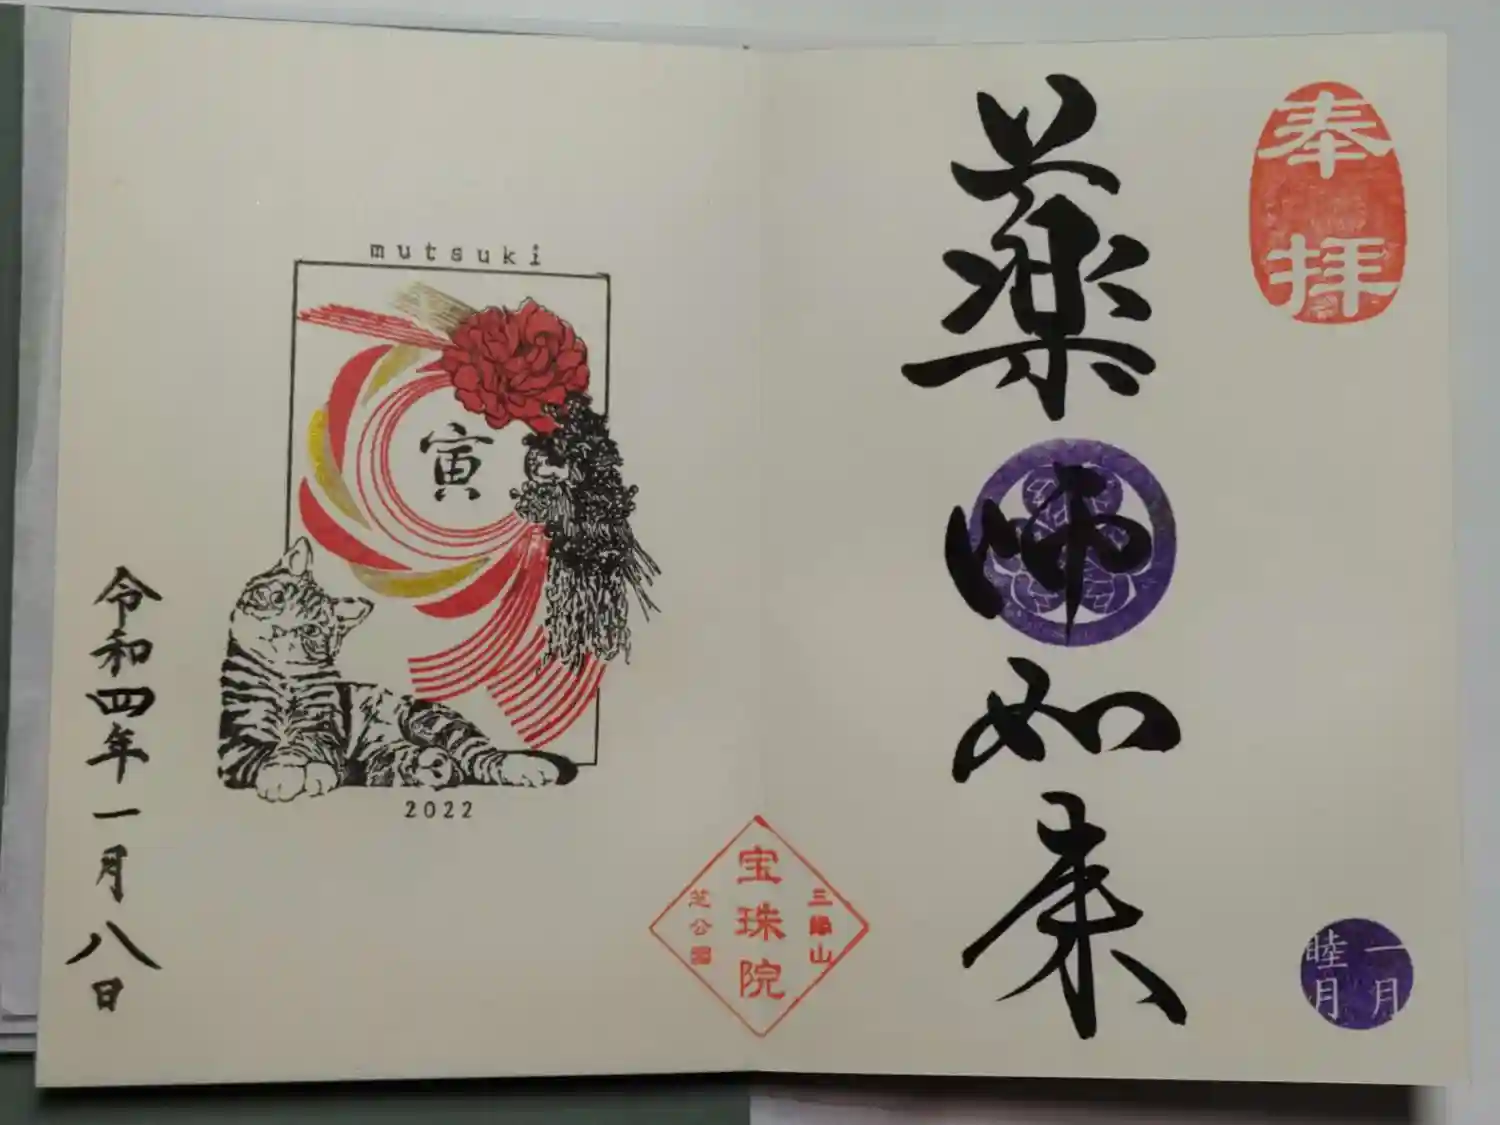 奉拝
薬師如来
一月
睦月
三縁山
宝珠院
芝公園
mutsuki
寅
2022
令和四年一月八日